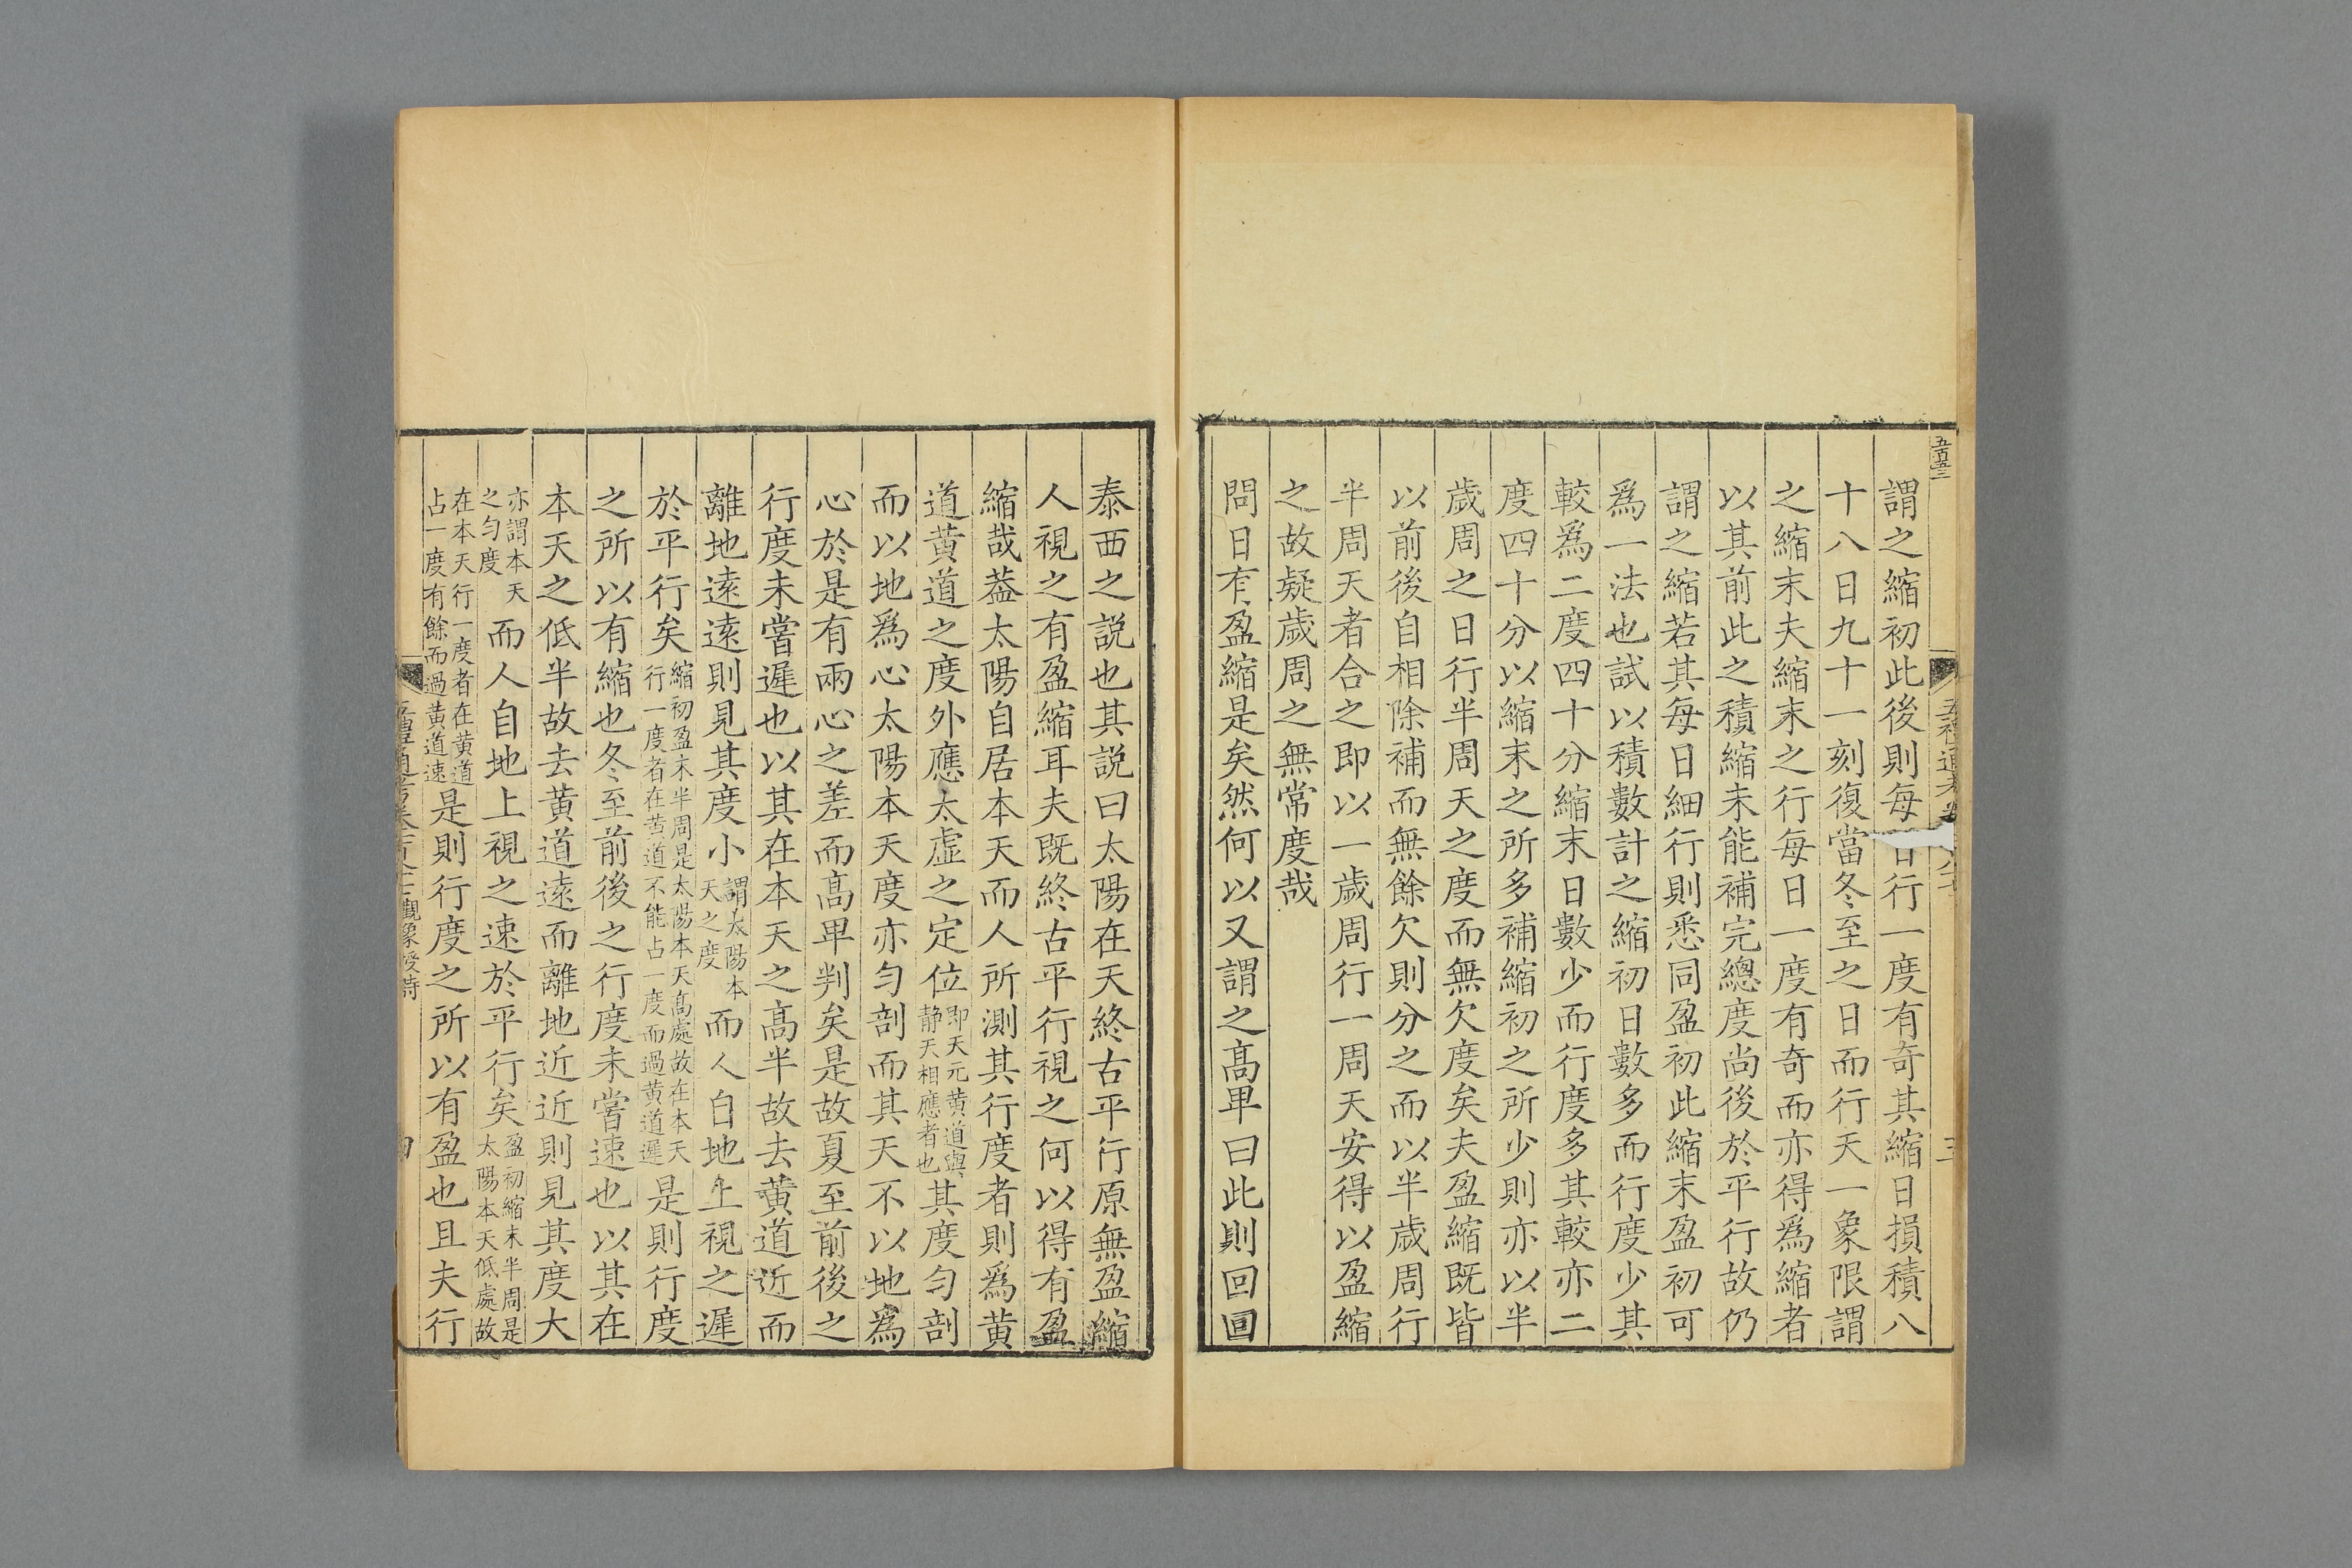 謂之縮初此後則每日行一度有奇其縮日損積八
十八日九十一刻復當冬至之日而行天一象限謂
之縮末夫縮末之行每日一度有奇而亦得爲縮者
以其前此之積縮未能補完總度尚後於平行故仍
謂之縮若其每日細行則悉同盈初此縮末盈初可
爲一法也試以積數計之縮初日數多而行度少其
較爲二度四十分縮末日數少而行度多其較亦二
度四十分以縮末之所多補縮初之所少則亦以半
歲周之日行半周天之度而無欠度矣夫盈縮既皆
以前後自相除補而無餘欠則分之而以半歲周行
半周天者合之即以一歲周行一周天安得以盈縮
之故疑歲周之無常度哉
問日有盈縮是矣然何以又謂之高卑曰此則回回
泰西之説也其説曰太陽在天終古平行原無盈縮
人視之有盈縮耳夫既終古平行視之何以得有盈
縮哉葢太陽自居本天而人所測其行度者則爲黄
道黄道之度外應太虛之定位即天元黄道與静天相應者也其度勻剖
而以地爲心太陽本天度亦勻剖而其天不以地爲
心於是有兩心之差而高卑判矣是故夏至前後之
行度未嘗遲也以其在本天之高半故去黄道近而
離地遠遠則見其度小謂太陽本天之度而人自地上視之遲
於平行矣縮初盈末半周是太陽本天高處故在本天行一度者在黄道不能占一度而過黄道遲是則行度
之所以有縮也冬至前後之行度未嘗速也以其在
本天之低半故去黄道遠而離地近近則見其度大
亦謂本天之勻度而人自地上視之速於平行矣盈初縮末半周是太陽本天低處故
在本天行一度者在黄道占一度有餘而過黄道速是則行度之所以有盈也且夫行
觀象授時